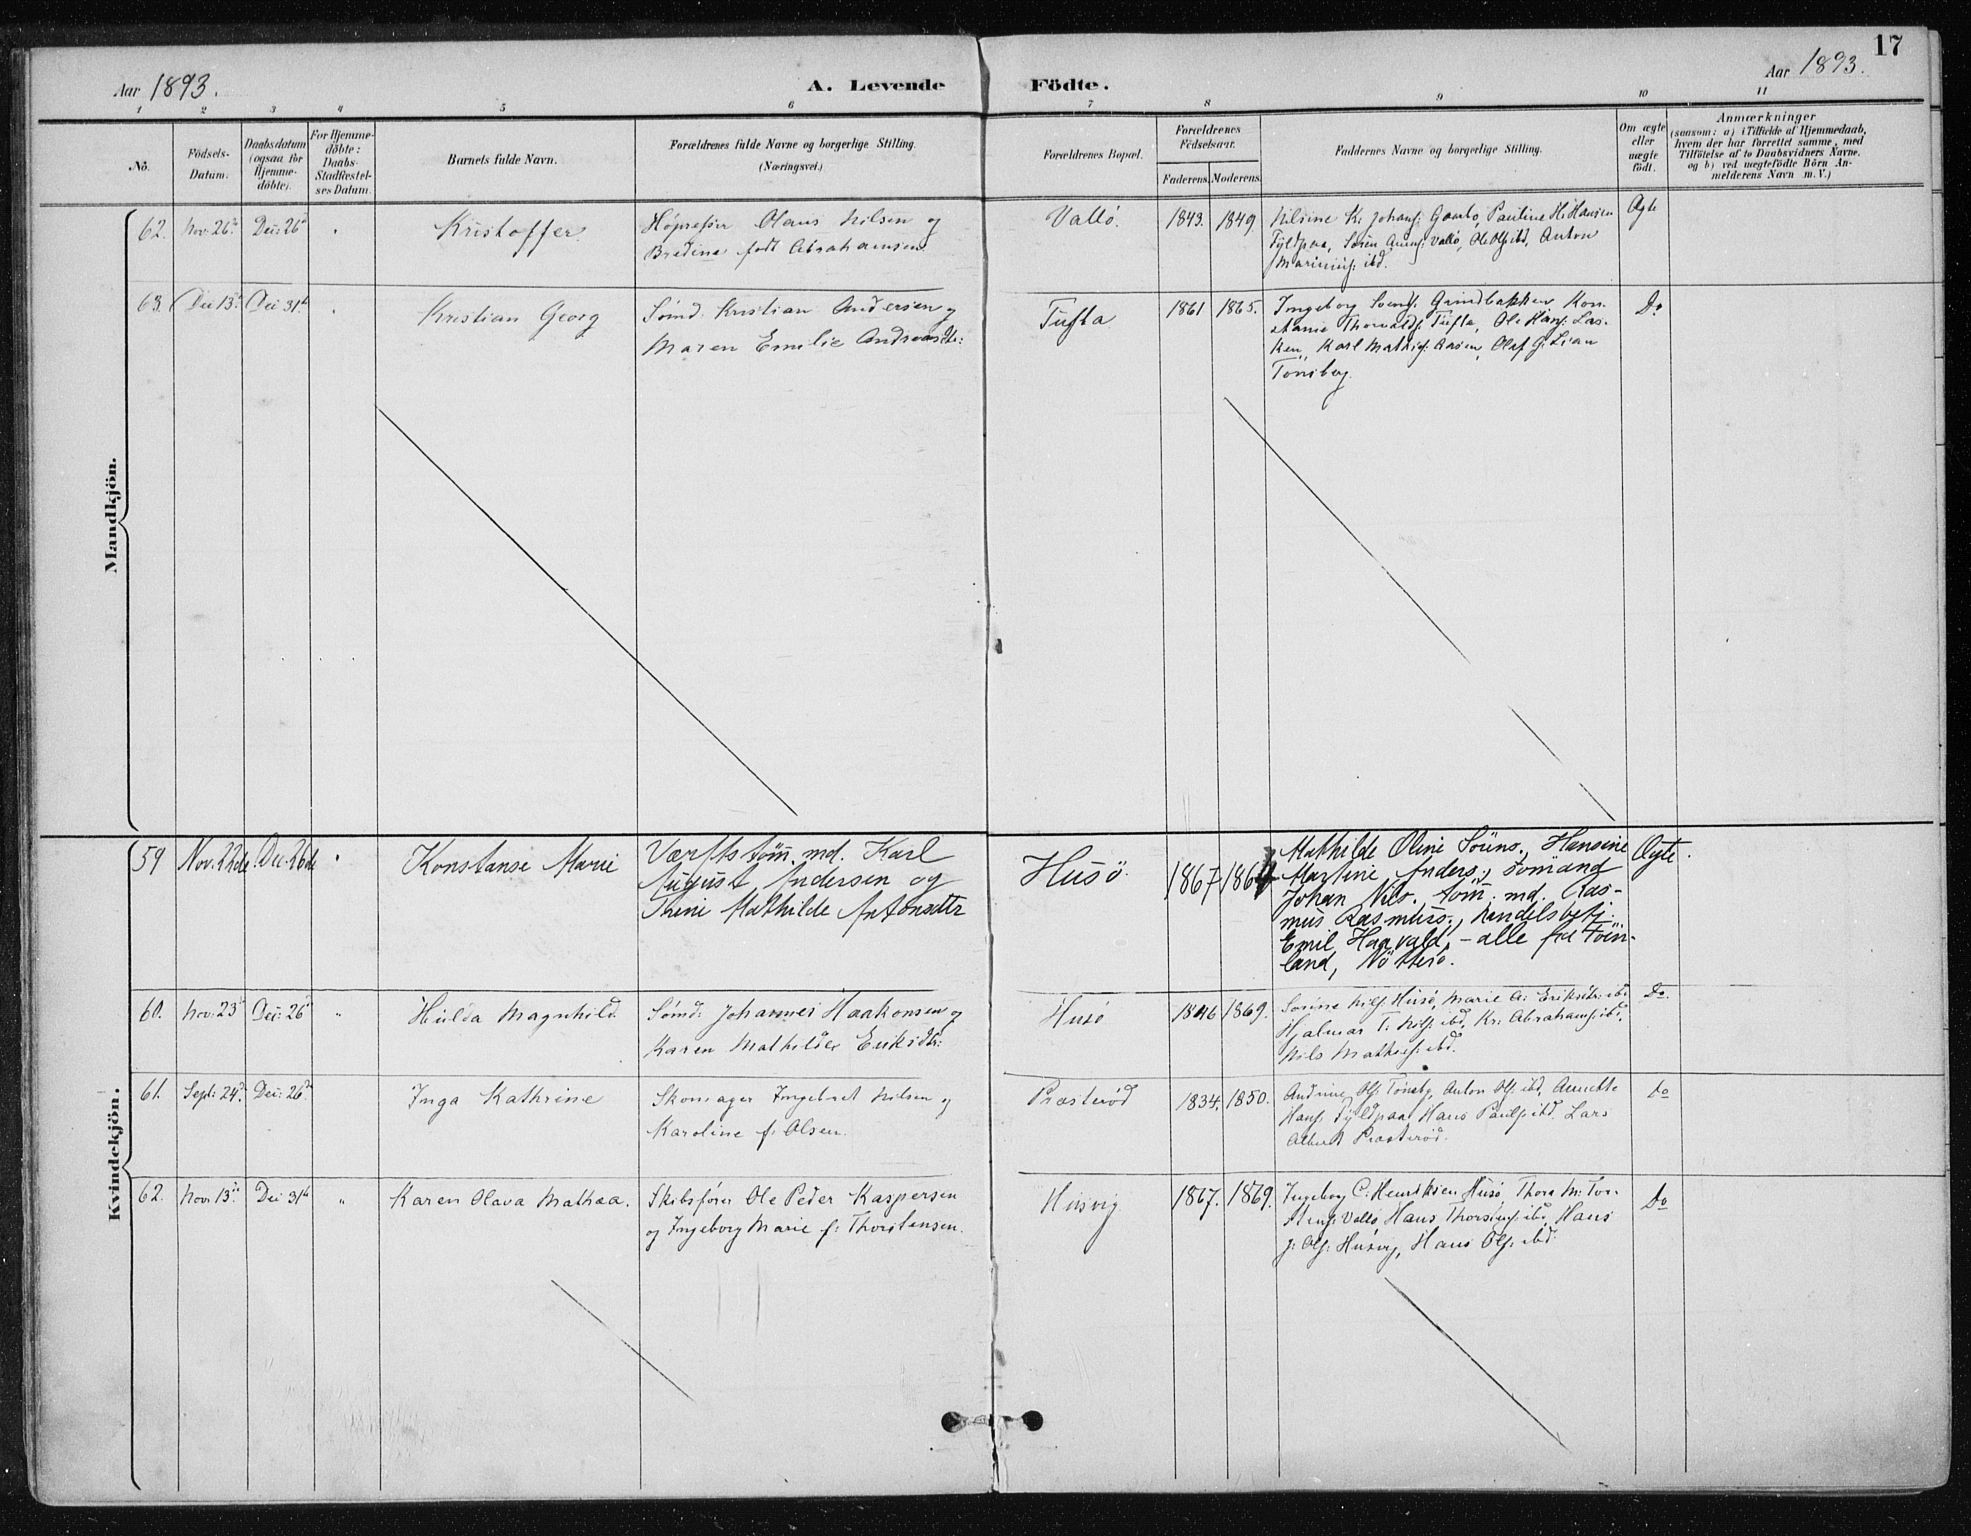 17
Aar 1893.
A. Levende Födte.
Aar 1893.
1 2 3 4 5 6 7 8 9 10 11
No.
Födsels-
Datum.
Daabsdatum
(ogsaa for
Hjemme-
döbte).
For Hjemme-
döbte:
Daabs-
Stadfæstel-
ses Datum.
Barnets fulde Navn.
Forældrenes fulde Navne og borgerlige Stilling.
(Næringsvei.)
Forældrenes Bopæl.
Forældrenes
Födselsaar.
Faderens. Moderens.
Faddernes Navne og borgerlige Stilling.
Om ægte
eller
uægte
födt.
Anmærkninger
(saasom: a) i Tilfælde af Hjemmedaab,
hvem der har forrettet samme, med
Tilföielse af to Daabsvidners Navne.
og b) ved uægtefödte Börn An-
melderens Navn m. V.)
Mandkjön.
62. Nov. 26de Dec: 26de Kristoffer
Olaus Nilsen og
Bredine født Abrahamsen
Vallö. 1843. 1849
Nilsine K. Johans: Gaarbo, Pauline H. Hansen
Søren Vallö, Ole Ols: ibd, Anton
ibd.
Ægte
63. Dec 13de Dec 31te Kristian Georg
Sømd: Kristian Andersen og
Maren Emilie Andreasdtr:
Tufta 1861 1865.
Ingeborg Svends: Grindbakken Kon-
stanse Thorvalds: Tufta, Ole Hans: Las-
ken, Karl Mathis: Aasen, Olaf G. Lian
Tønsberg.
Do
Kvindekjön.
59 Nov. 22de Dec. 26de Konstanse Marie
Værftstöm. md. Karl
August Andersen og
Thrine Mathilde Antonsdtr
Husö. 1867 1864
Mathilde Oline Sörens., Hansine
Martine Anders., sömand
Johan Nils., töm. md. Ras-
mus Rasmuss., handelsbetj.
Emil Haavald, – alle fra Töin-
land, Nötterö.
Ægte.
60. Nov: 23de Dec: 26de " Hulda Magnhild
Sømd: Johannes Haakonsen og
Karen Mathilde Eriksdtr:
Husö 1869.
Nils: Husö, Marie A. Eriksdtr: ibd,
Hjalmar T. Nils: ibd, Kr: Abrahams: ibd,
Nils Mathis: ibd.
Do.
61. Sept: 24de Dec: 26de Inga Kathrine
Skomager Ingebret Nilsen og
Karoline f: Olsen.
Præsterød 1834. 1850.
Andrine Ols: Tønsbg, Anton Ols: ibd, Annette
Hans: Hans Pauls: ibd. Lars
Albert Præsterød.
Do
62. Nov: 13de Dec 31te " Karen Olava Mathea.
Skibsfører Ole Peder Kaspersen
og Ingeborg Marie f: Thorstensen.
Husvig 1867. 1869.
Ingeborg C. Henriksen Husö, Thora M: Tor-
stens: Vallö, Hans Thorstens: ibd, Hans
J: Ols: Husvig, Hans Ols: ibd.
Do